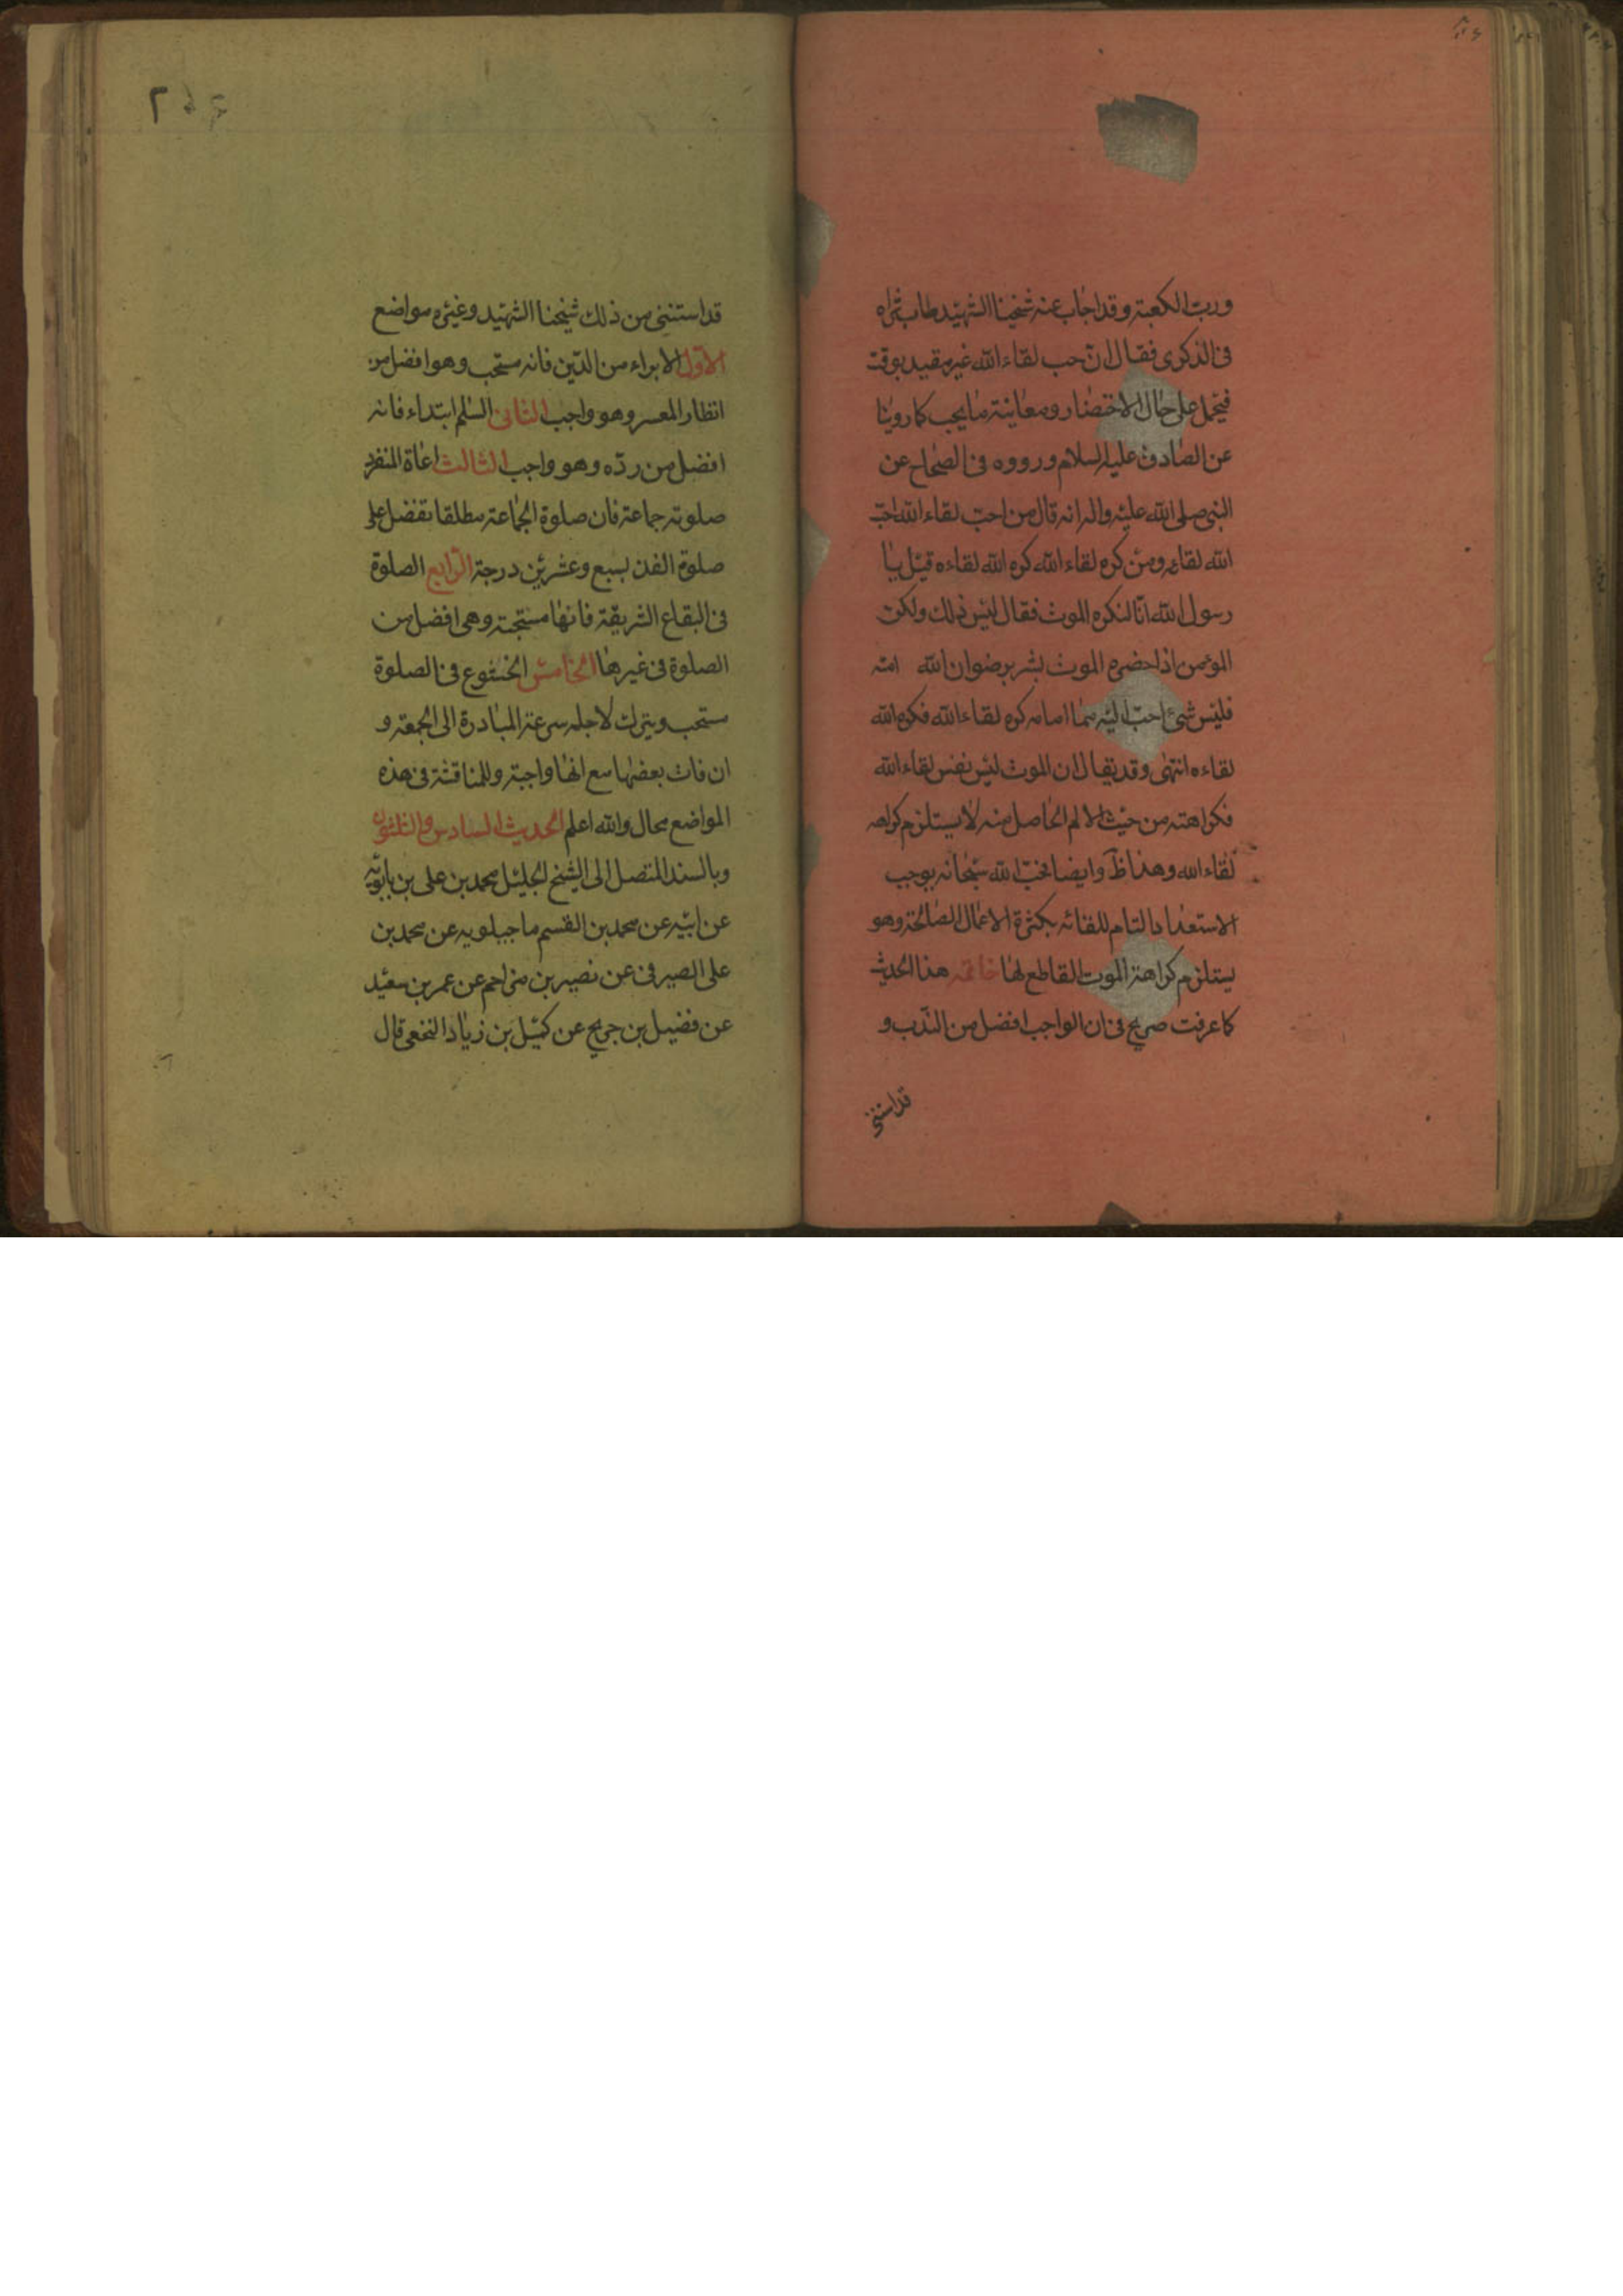 ورب الكعبة وقد اجاب عنه شيخنا الشهيد طاب ثراه
فى الذكرى فقال ان حب لقاء الله غير مقيد بوقت
فيحمل على حال الاحتضار ومعاينة ما يحب كما روينا
عن الصادق عليه السلام ورووه فى الصحاح عن
النبى صلى الله عليه واله انه قال من احب لقاء الله احب
الله لقاءه ومن كره لقاء الله كره الله لقاءه قيل يا
رسول الله انا لنكره الموت فقال ليس ذلك ولكن
المؤمن اذا حضره الموت بشر برضوان الله
فليس شئ احب اليه مما امامه كره لقاء الله فكره الله
لقاءه انتهى وقد يقال ان الموت ليس نفس لقاء الله
فكراهته من حيث الالم الحاصل منه لا يستلزم كراهه
لقاء الله وهذا ظ وايضا فحب الله سبحانه يوجب
الاستعداد التام للقائه بكثرة الاعمال الصالحة وهو
يستلزم كراهة الموت القاطع لها خاتمه هذا الحديث
كما عرفت صريح فى ان الواجب افضل من الندب و
قد استثنى
٢٠٤
قد استثنى من ذلك شيخنا الشهيد وغيره مواضع
الاول الابراء من الدين فانه مستحب وهو افضل من
انظار المعسر وهو واجب الثانى السلم ابتداء فانه
افضل من رده وهو واجب الثالث اعاة المنفرد
صلوته جماعة فان صلوة الجماعة مطلقا تفضل على
صلوة الفذ بسبع وعشرين درجة الرابع الصلوة
فى البقاع الشريفة فانها مستحبة وهى افضل من
الصلوة فى غيرها الخامس الخشوع فى الصلوة
مستحب ويترك لاجله سرعة المبادرة الى الجمعة و
ان فات بعضها مع انها واجبة وللمناقشة فى هذه
المواضع مجال والله اعلم الحديث السادس والثلثون
وبالسند المتصل الى الشيخ الجليل محمد بن على بن بابويه
عن ابيه عن محمد بن القسم ماجيلويه عن محمد بن
على الصيرفى عن نصير بن مزاحم عن عمر بن سعيد
عن فضيل بن جريح عن كميل بن زياد النخعى قال